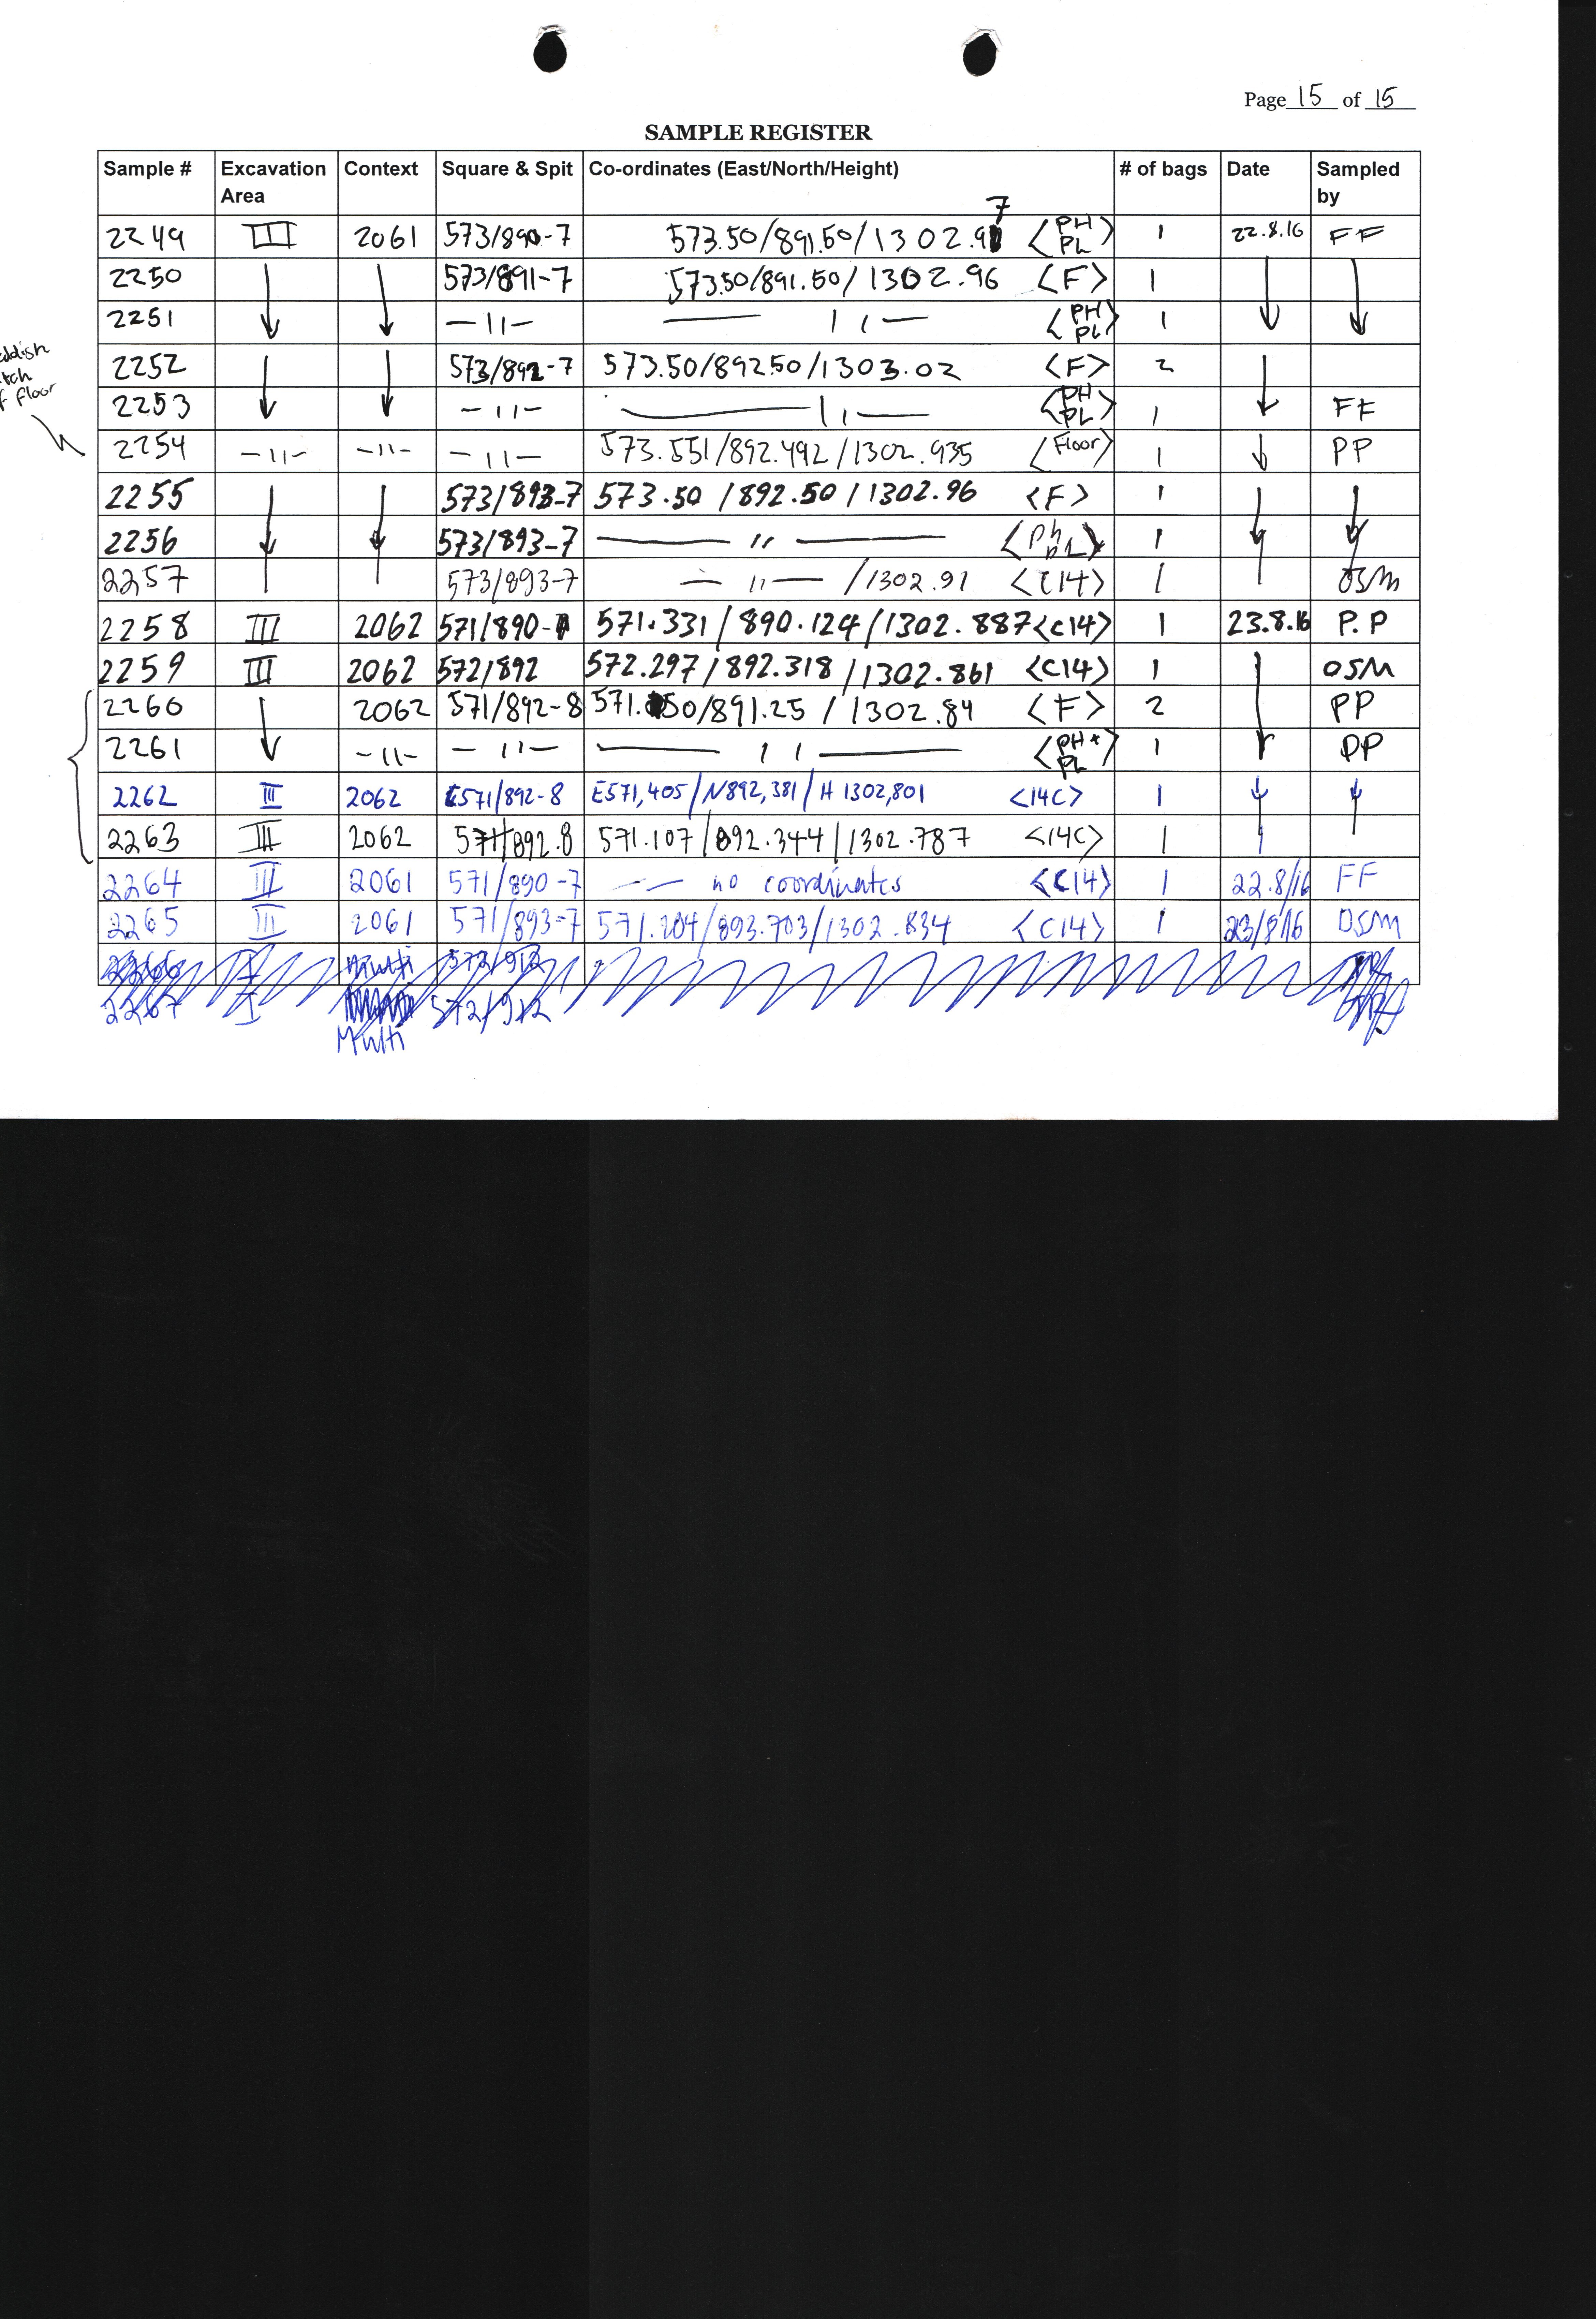 Page 15 of 15
SAMPLE REGISTER
Sample # Excavation Area Context Square & Spit Co-ordinates (East/North/Height) # of bags Date Sampled by
2249 III 2061 573/890-7 573.50/891.50/1302.97 <PH PL> 1 22.8.16 FF
2250 573/891-7 573.50/891.50/1302.96 <F> 1
2251 —11— — 11 — <PH PL> 1
2252 573/892-7 573.50/892.50/1303.02 <F> 2
2253 —11— — 11 — <PH PL> 1 FF
eddish
tch
f floor
2254 —11— —11— —11— 573.551/892.492/1302.935 <Floor> 1 PP
2255 573/893-7 573.50/892.50/1302.96 <F> 1
2256 573/893-7 — 11 — <Ph PL> 1
2257 573/893-7 — 11 — /1302.91 <C14> 1 OSM
2258 III 2062 571/890- 571.331/890.124/1302.887 <C14> 1 23.8.16 P.P
2259 III 2062 572/892 572.297/892.318/1302.861 <C14> 1 OSM
2260 2062 571/892-8 571.50/891.25/1302.84 <F> 2 PP
2261 —11— —11— — 11 — <PH+ PL> 1 PP
2262 III 2062 E571/892-8 E571,405/N892,381/H 1302,801 <14C> 1
2263 III 2062 571/892.8 571.107/892.344/1302.787 <14C> 1
2264 III 2061 571/890-7 — no coordinates <C14> 1 22.8/16 FF
2265 III 2061 571/893-7 571.204/893.703/1302.834 <C14> 1 23/8/16 OSM
2266 I Multi 572/912
2267 I 572/912
Multi